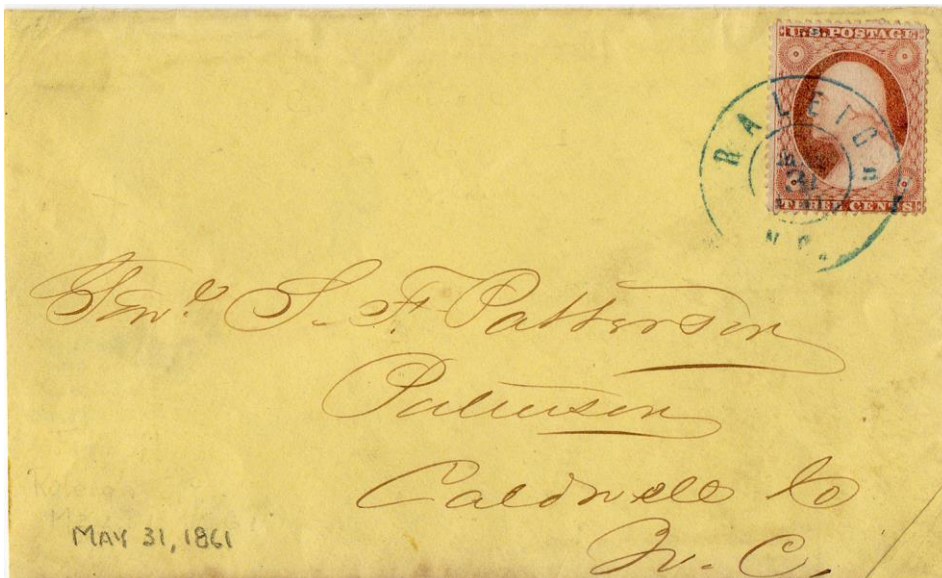 U.S. POSTAGE
THREE CENTS
RALEIGH
31
N.C.
Genl. S. F. Patterson
Patterson
Caldwell Co
N. C.
MAY 31, 1861